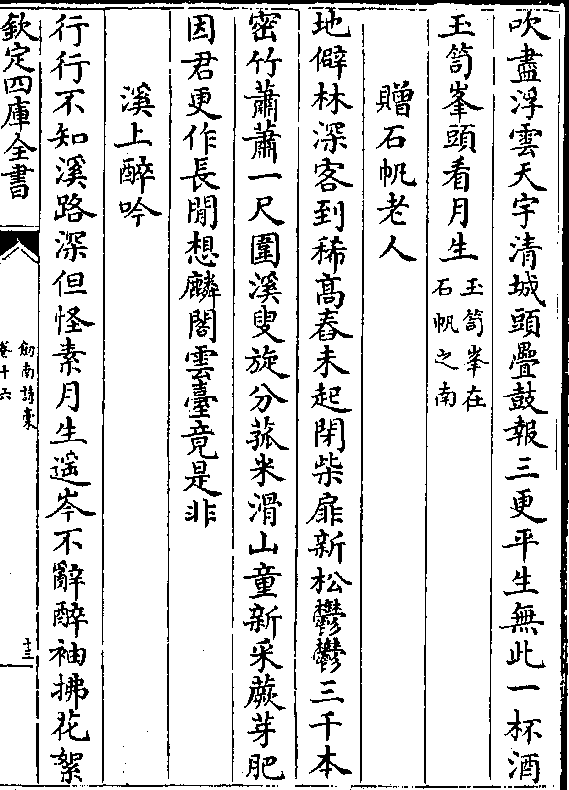 吹盡浮雲天宇清城頭疊鼓報三更平生無此一杯酒
玉笥峯頭看月生玉笥峯在
石帆之南
贈石帆老人
地僻林深客到稀高舂未起閉柴扉新松鬱鬱三千本
密竹蕭蕭一尺圍溪叟旋分菰米滑山童新采蕨芽肥
因君更作長閒想麟閣雲臺竟是非
溪上醉吟
行行不知溪路深但怪素月生遥岑不辭醉袖拂花絮
欽定四庫全書
劍南詩稾
卷十六
十三